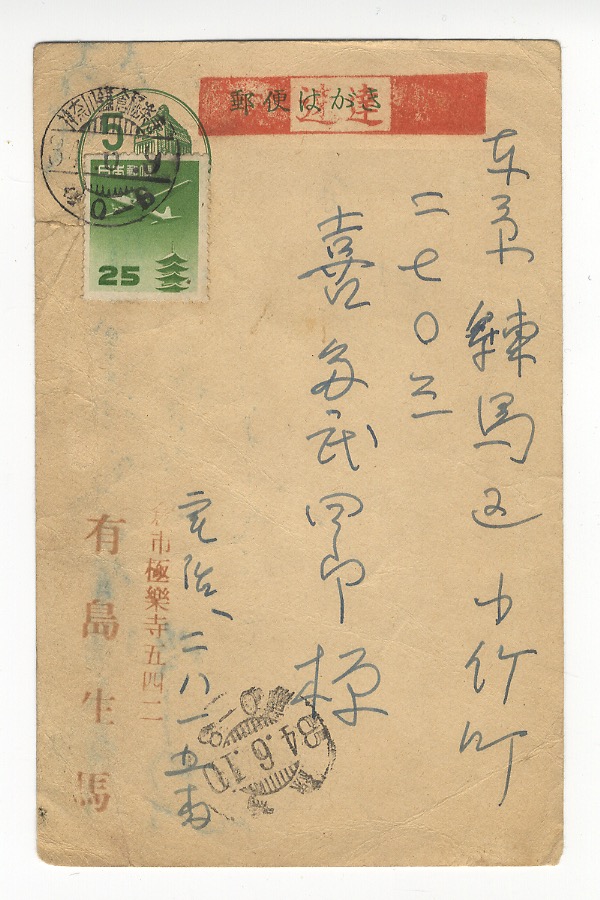 郵便はがき
速達
5
日本郵便
25
東京練馬区小竹町
二七〇三
喜多武四郎様
電話、二八一五番
市極樂寺五四二
有島生馬
34.6.10